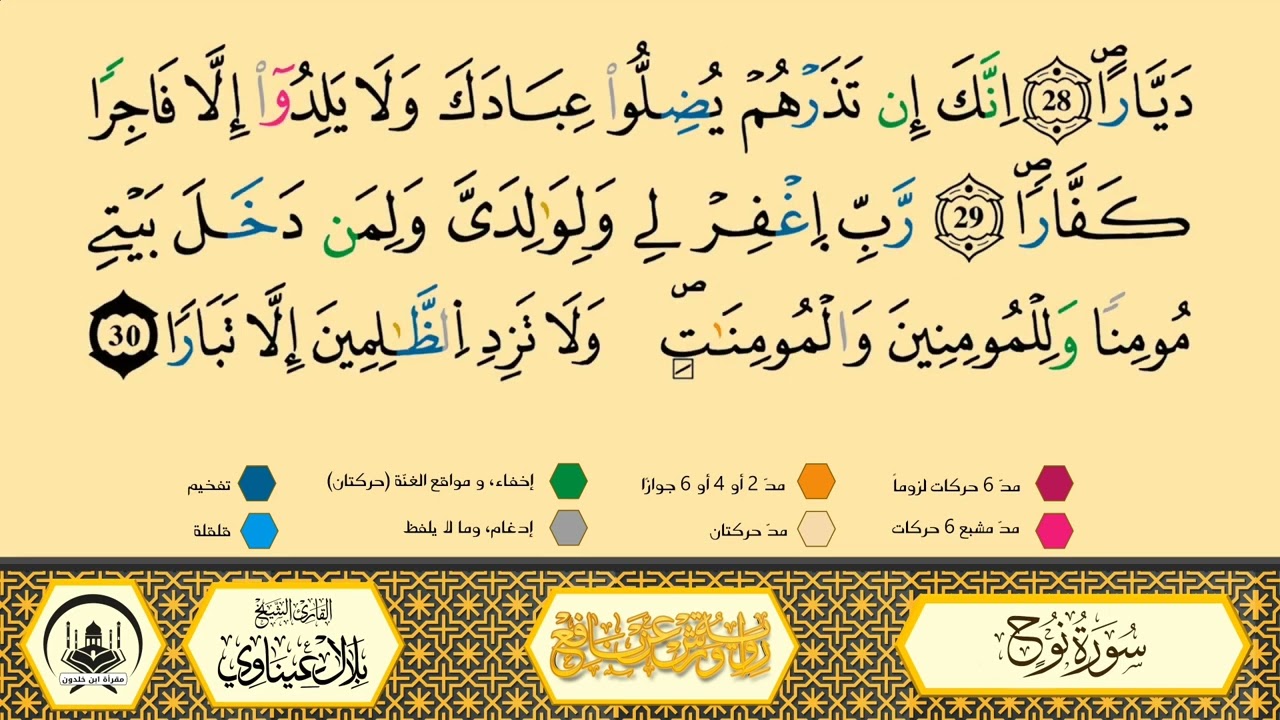 دَيَّارًاۖ 28 اِنَّكَ إِن تَذَرْهُمْ يُضِلُّواْ عِبَادَكَ وَلَا يَلِدُوٓاْ إِلَّا فَاجِرًا
كَفَّارًاۖ 29 رَّبِّ اِ۪غْفِرْ لِے وَلِوَٰلِدَيَّ وَلِمَن دَخَلَ بَيْتِے
مُومِنًا وَلِلْمُومِنِينَ وَالْمُومِنَٰتِۖ وَلَا تَزِدِ اِ۬لظَّٰلِمِينَ إِلَّا تَبَارَۢا 30
مدّ 6 حركات لزوماً
مدّ 2 أو 4 أو 6 جوازًا
إخفاء، و مواقع الغنّة (حركتان)
تفخيم
مدّ مشبع 6 حركات
مدّ حركتان
إدغام، وما لا يلفظ
قلقلة
سُورَةُ نُوحٍ
رواية ورش عن نافع
القارئ الشيخ
بلال عيناوي
مقرأة ابن خلدون